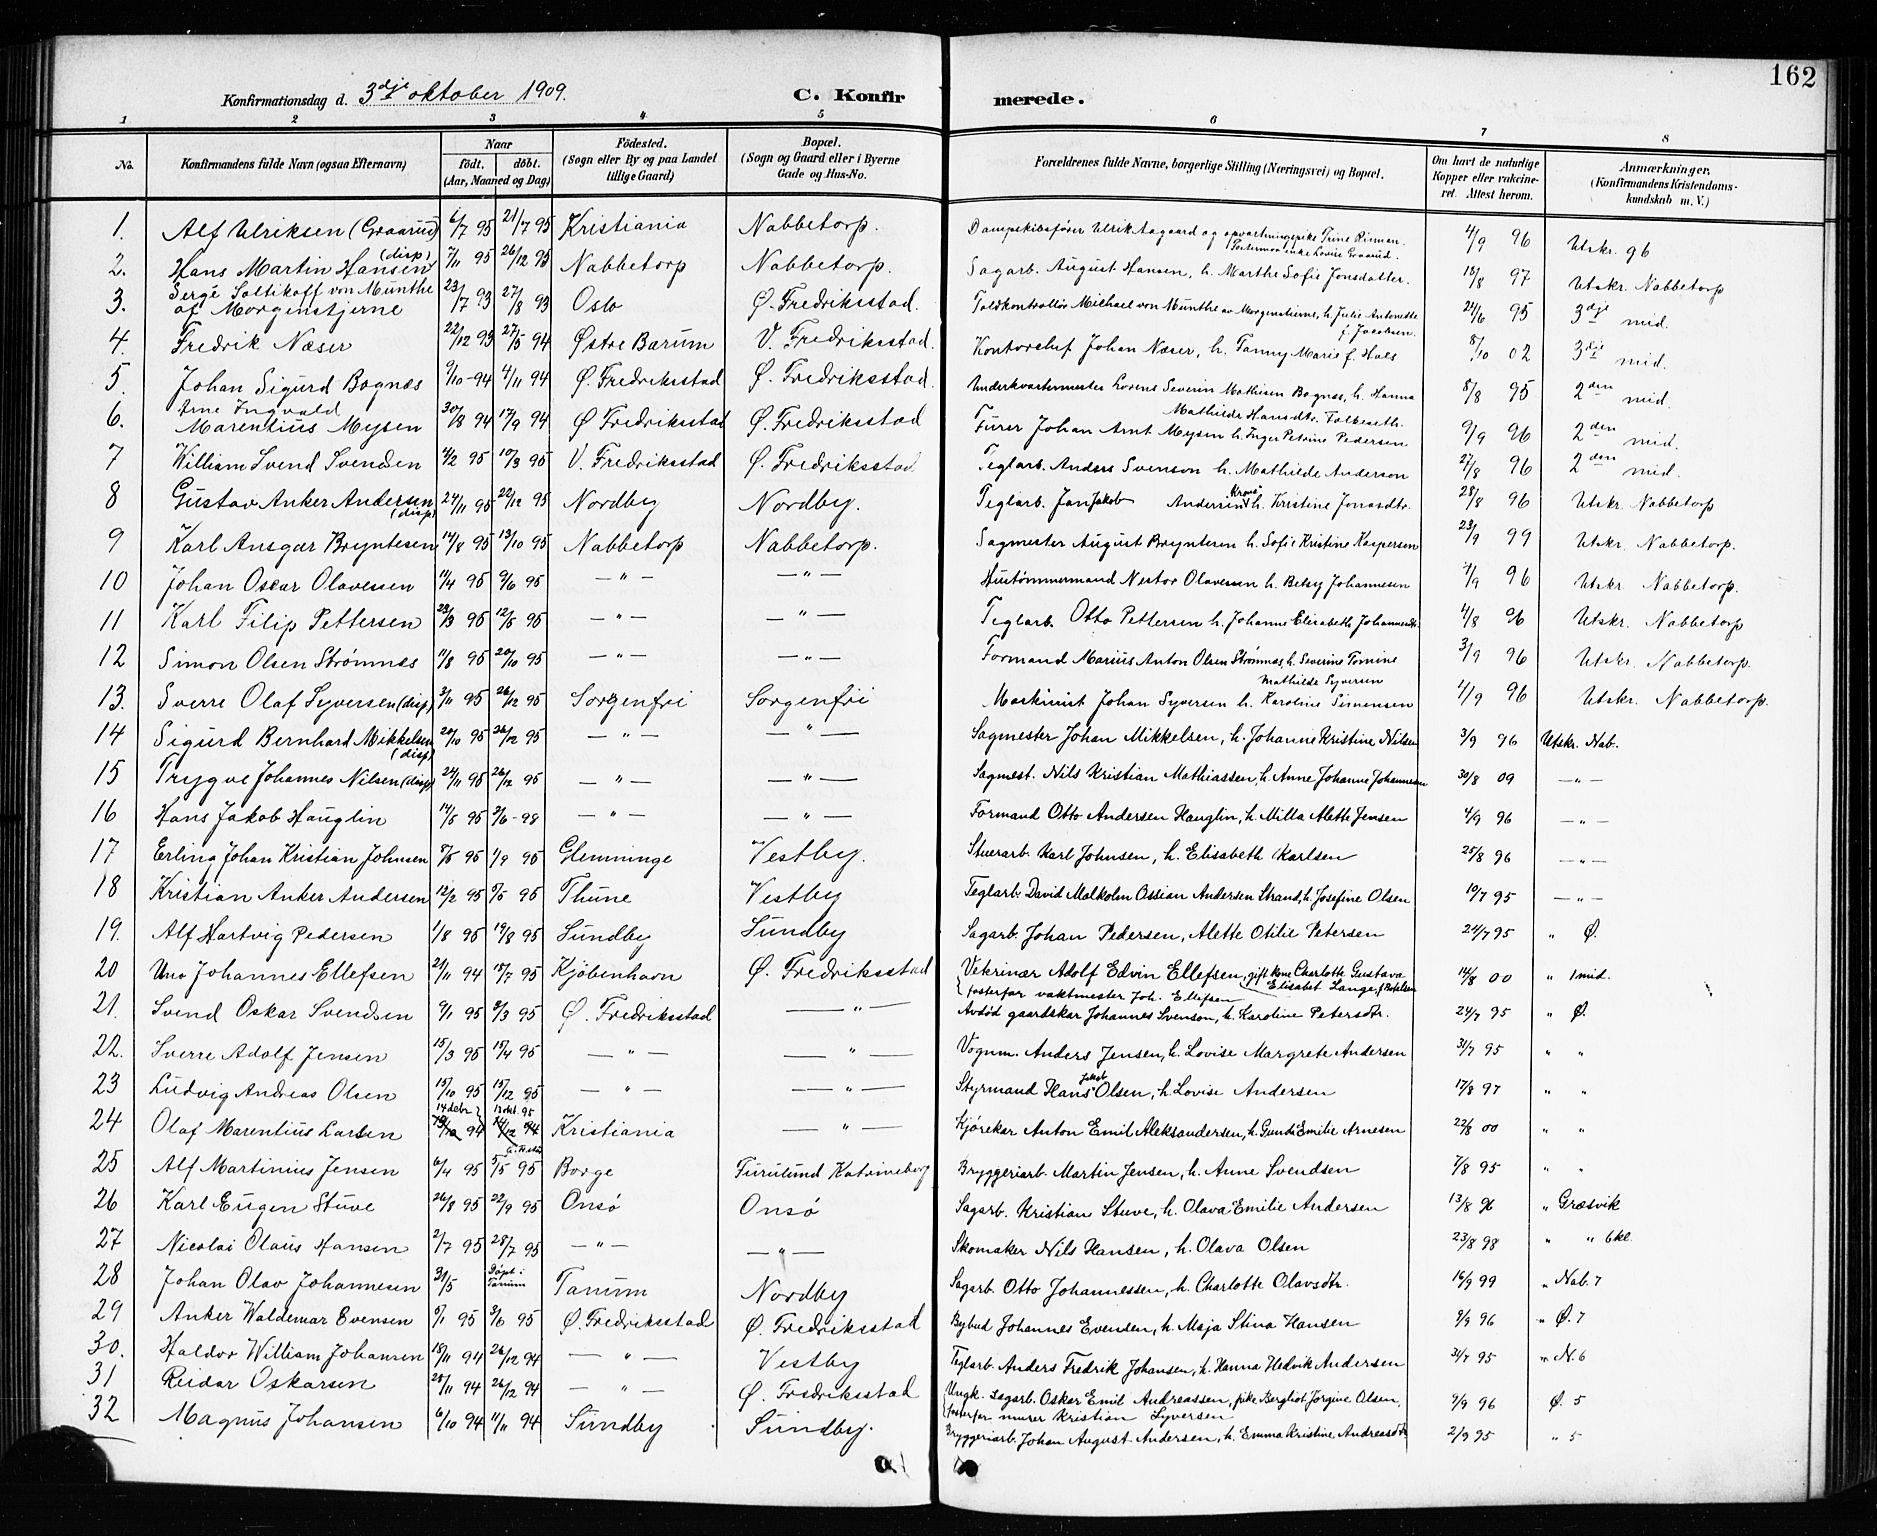 162
Konfirmationsdag d. 3dje oktober 1909. C. Konfir merede.
1 2 3 4 5 6 7 8
No. Konfirmandens fulde Navn (ogsaa Efternavn) Naar födt. döbt. (Aar, Maaned og Dag) Födested. (Sogn eller By og paa Landet tillige Gaard) Bopæl. (Sogn og Gaard eller i Byerne Gade og Hus-No. Forældrenes fulde Navne, borgerlige Stilling (Næringsvei) og Bopæl. Om havt de naturlige Kopper eller vakcineret. Attest herom. Anmærkninger. (Konfirmandens Kristendomskundskab m. V.)
1. Alf Ulriksen (Graarud) 6/7 95 21/7 95 Kristiania Nabbetorp. Dampskibsfører Ulrik Aagaard og opvartningspike Trine Rinman. 4/9 96 Utskr. 96
Fostermor enke Lovise Graarud.
2. Hans Martin Hansen (disp) 7/11 95 26/12 95 Nabbetorp Nabbetorp. Sagarb. August Hansen, h. Marthe Sofie Jonsdatter. 18/8 97 Utskr. Nabbetorp
3. Serge Soltikoff von Munthe af Morgenstjerne 23/7 93 27/8 93 Oslo Ø. Fredriksstad. Toldkontrollør Michael von Munthe av Morgenstierne, h. Julie Antonette f. Jacobsen. 24/6 95 3dje mid.
4. Fredrik Næser 22/12 93 27/5 94 Østre Bærum V. Fredriksstad. Kontorchef Johan Næser, h. Fanny Marie f. Hals 8/10 02 3die mid.
5. Johan Sigurd Bognæs 9/10-94 4/11 94 Ø. Fredriksstad Ø. Fredriksstad. Underkvartermester Lorens Severin Mathisen Bognæs, h. Hanna Mathilde Hansdtr. Folbeseth. 8/8 95 2den mid.
6. Arne Ingvald Marentius Mysen 30/8 94 17/9 94 Ø Fredriksstad Ø. Fredriksstad. Furer Johan Arnt Mysen h. Inger Petrine Pedersen 9/9 96 2den mid.
7 William Svend Svendsen 4/2 95 10/3 95 V. Fredriksstad Ø. Fredriksstad. Teglarb. Anders Svenson h. Mathilde Anderson 27/8 96 2den mid.
8 Gustav Anker Andersen (disp) 24/11 95 22/12 95 Nordby Nordby. Teglarb. Jan Jakob Andersen h. Kristine Jonasdtr. 28/8 96 Utskr. Nabbetorp
9 Karl Ansgar Bryntesen 14/8 95 13/10 95 Nabbetorp Nabbetorp. Sagmester August Bryntesen h. Sofie Kristine Kaspersen 23/9 99 Utskr. Nabbetorp.
10 Johan Oscar Olavesen 11/4 95 9/6 95 — " — — " — Hustømmermand Nestor Olavesen h. Betsy Johannesen 4/9 96 Utskr. Nabbetorp.
11 Karl Filip Pettersen 23/3 95 12/5 95 — " — — " — Teglarb. Otto Pettersen h. Johanne Elisabeth Johannesdtr. 4/8 96 Utskr. Nabbetorp
12 Simon Olsen Strømnes 11/8 95 20/10 95 — " — — " — Formand Marius Anton Olsen Strømnes, h. Severine Tomine Mathilde Syversen 3/9 96 Utskr. Nabbetorp.
13. Sverre Olaf Syversen (disp) 3/11 95 26/12 95 Sorgenfri Sorgenfri Maskinist Johan Syversen h. Karoline Simensen 4/9 96 Utskr. Nabbetorp.
14 Sigurd Bernhard Mikkelsen (disp) 20/10 95 26/12 95 — " — — " — Sagmester Johan Mikkelsen, h. Johanne Kristine Nilsen 3/9 96 Utskr. Nab.
15 Trygve Johannes Nilsen (disp) 24/11 95 26/12 95 — " — — " — Sagmest. Nils Kristian Mathiassen, h. Anne Johanne Johannesen 30/8 09 — " —
16 Hans Jakob Hauglin 14/5 95 3/6-98 — " — — " — Formand Otto Andersen Hauglin, h. Milla Alette Jensen 4/9 96 — " —
17 Erling Johan Kristian Johnsen 8/5 95 1/9 95 Glemminge Vestby. Stuerarb. Karl Johnsen, h. Elisabeth Karlsen 25/8 96 — " —
18 Kristian Anker Andersen 12/2 95 5/5 95 Thune Vestby Teglarb. David Malkolm Ossian Andersen Strand, h. Josefine Olsen 19/7 95 — " —
19. Alf Hartvig Pedersen 1/8 95 19/8 95 Sundby Sundby Sagarb. Johan Pedersen, Alette Otilie Petersen 24/7 95 " Ø.
20 Uno Johannes Ellefsen 21/11 94 15/7 95 Kjöbenhavn Ø. Fredriksstad Veterinær Adolf Edvin Ellefsen, gift kone Charlotte Gustava Elisabet Lange, 14/8 00 " 1 mid.
fosterfar vaktmester Joh. Ellefsen
21. Svend Oskar Svendsen 9/1 95 3/3 95 Ø. Fredriksstad — " — Avdød gaardskar Johannes Svenson, h. Karoline Petersdtr. 24/7 95 " Ø.
22. Sverre Adolf Jensen 15/3 95 15/4 95 — " — — " — Vognm. Anders Jensen, h. Lovise Margrete Andersen 31/7 95 " "
23 Ludvig Andreas Olsen 15/10 95 15/12 95 — " — — " — Styrmand Hans Jakob Olsen, h. Lovise Andersen 17/8 97 " "
24 Olaf Marentius Larsen 94 94 Kristiania — " — Kjørekar Anton Emil Aleksandersen, h. Gunda Emilie Arnesen 22/8 00 " "
25 Alf Martinius Jensen 6/4 95 5/5 95 Borge Furulund Katrineborg Bryggeriarb. Martin Jensen, h. Anne Svendsen 7/8 95 " "
26 Karl Eugen Stuve 26/8 95 22/9 95 Onsø Onsø Sagarb. Kristian Stuve, h. Olava Emilie Andersen 13/8 96 " Græsvik
27 Nicolai Olaus Hansen 2/7 95 28/7 95 — " — — " — Skomaker Nils Hansen, h. Olava Olsen 23/8 98 " " 6 kl.
28 Johan Olav Johannesen 31/5 Döpt i Tanum Tanum Nordby Sagarb. Otto Johannessen, h. Charlotte Olavsdtr. 16/9 99 " Nab. 7
29 Anker Waldemar Evensen 8/1 95 3/6 95 Ø. Fredriksstad Ø. Fredriksstad Bybud Johannes Evensen, h. Maja Stina Hansen 8/9 96 " Ø. 7
30. Haldor William Johansen 18/11 94 26/12 94 — " — Vestby Teglarb. Anders Fredrik Johansen, h. Hanna Hedvik Andersen 31/7 95 " N. 6
31 Reidar Oskarsen 25/11 94 26/12 94 — " — Ø. Fredriksstad Ungk. sagarb. Oskar Emil Andreassen, pike Bergliot Jørgine Olsen, 9/9 96 Ø. 5
fosterfar murer Kristian Syversen
32 Magnus Johansen 6/10 94 11/11 94 Sundby Sundby. Bryggeriarb. Johan August Andersen, h. Emma Kristine Andreasdtr 2/9 95 " 5